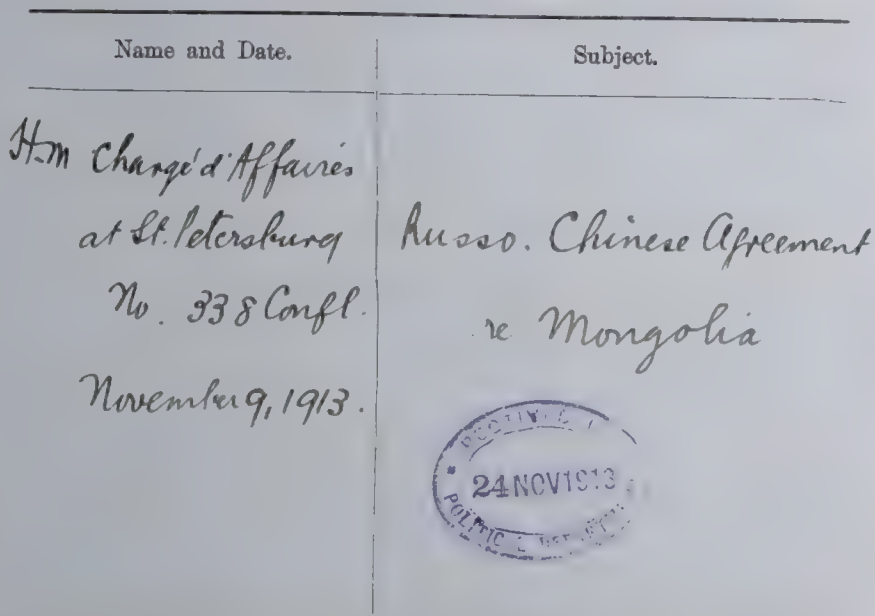 Name and Date.
Subject.
H.M Chargé d'Affaires
at St. Petersburg
No. 338 Confl.
November 9, 1913.
Russo. Chinese Agreement
re Mongolia
24 NOV 1913